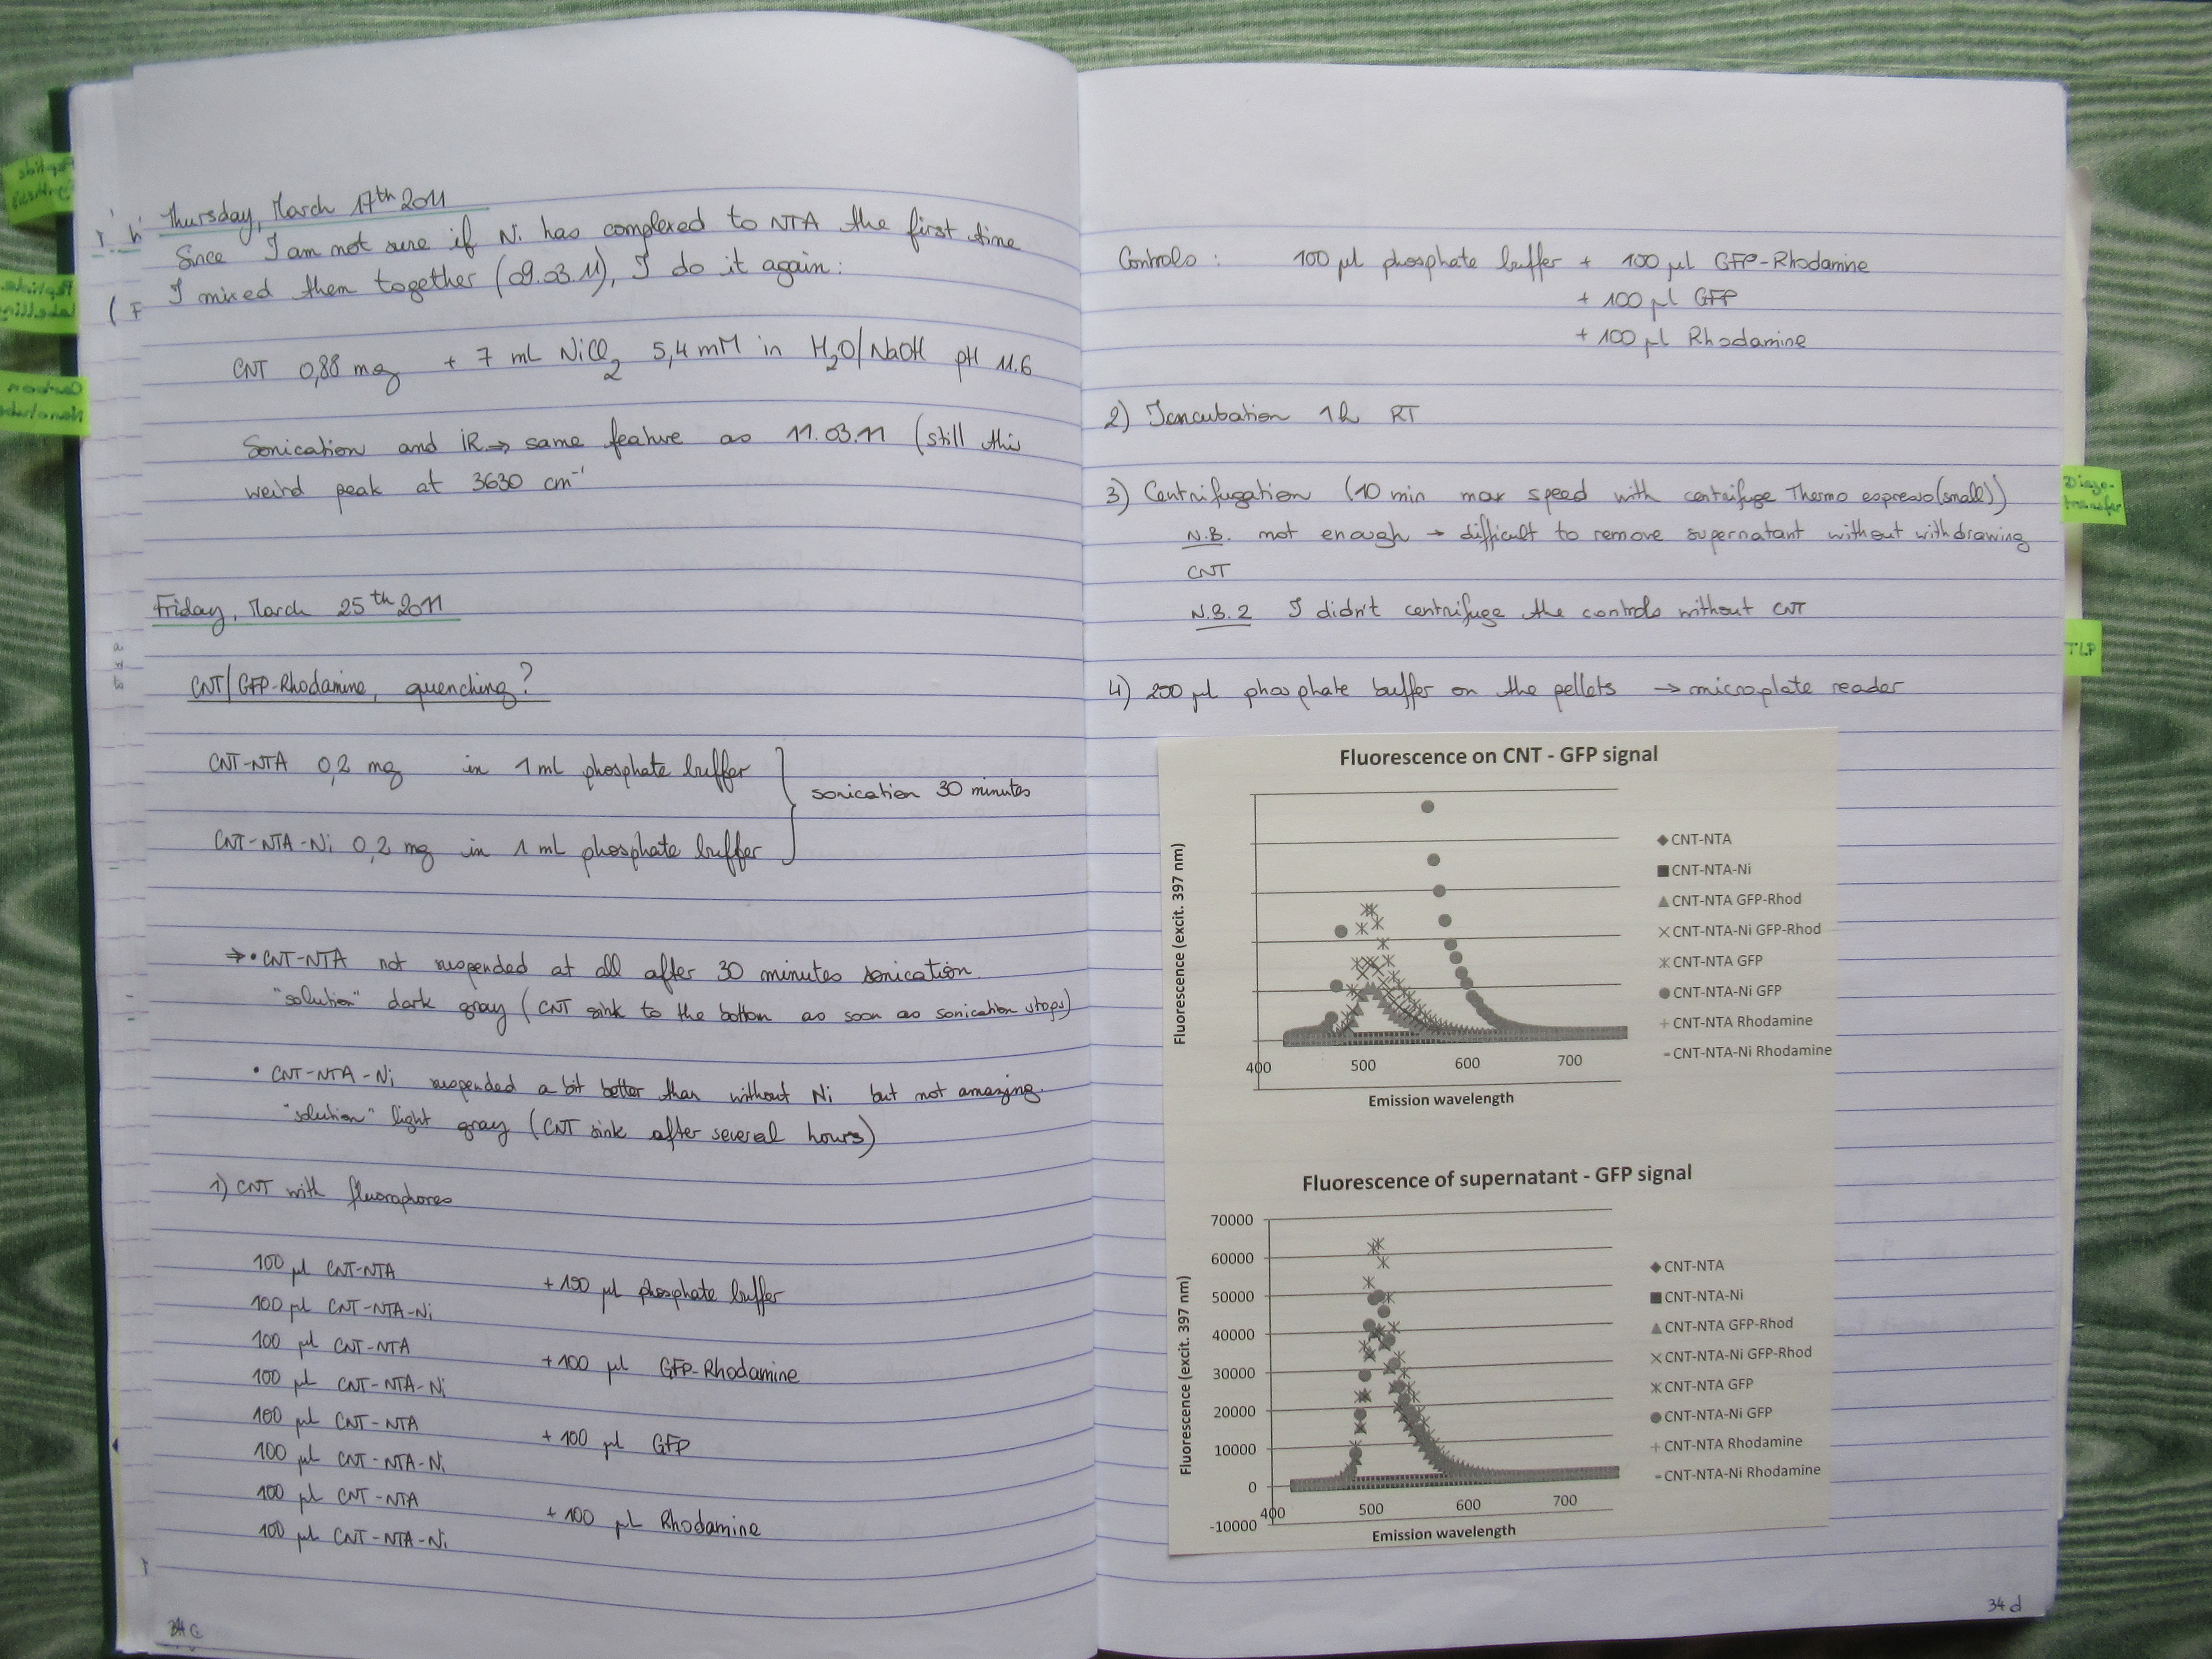 Thursday, March 17th 2011
Since I am not sure if Ni has complexed to NTA the first time
I mixed them together (09.03.11), I do it again:
CNT 0,88 mg + 7 mL NiCl2 5,4 mM in H2O/NaOH pH 11.6
Sonication and IR → same feature as 11.03.11 (still this
weird peak at 3630 cm-1
Friday, March 25th 2011
CNT/GFP-Rhodamine, quenching?
CNT-NTA 0,2 mg in 1 ml phosphate buffer
sonication 30 minutes
CNT-NTA-Ni 0,2 mg in 1 ml phosphate buffer
⇒ • CNT-NTA not suspended at all after 30 minutes sonication.
"solution" dark gray (CNT sink to the bottom as soon as sonication stops)
• CNT-NTA-Ni suspended a bit better than without Ni but not amazing.
"solution" light gray (CNT sink after several hours)
1) CNT with fluorophores
100 µl CNT-NTA
+100 µl phosphate buffer
100 µl CNT-NTA-Ni
100 µl CNT-NTA
+100 µl GFP-Rhodamine
100 µl CNT-NTA-Ni
100 µl CNT-NTA
+100 µl GFP
100 µl CNT-NTA-Ni
100 µl CNT-NTA
+100 µl Rhodamine
100 µl CNT-NTA-Ni
34c
Controls : 100 µl phosphate buffer + 100 µl GFP-Rhodamine
+ 100 µl GFP
+ 100 µl Rhodamine
2) Incubation 1h RT
3) Centrifugation (10 min max speed with centrifuge Thermo espresso(small))
N.B. not enough → difficult to remove supernatant without withdrawing
CNT
N.B.2 I didn't centrifuge the controls without CNT
4) 200 µl phosphate buffer on the pellets → microplate reader
Fluorescence on CNT - GFP signal
Fluorescence (excit. 397 nm)
400 500 600 700
Emission wavelength
CNT-NTA
CNT-NTA-Ni
CNT-NTA GFP-Rhod
CNT-NTA-Ni GFP-Rhod
CNT-NTA GFP
CNT-NTA-Ni GFP
CNT-NTA Rhodamine
CNT-NTA-Ni Rhodamine
Fluorescence of supernatant - GFP signal
Fluorescence (excit. 397 nm)
70000
60000
50000
40000
30000
20000
10000
0
-10000
400 500 600 700
Emission wavelength
CNT-NTA
CNT-NTA-Ni
CNT-NTA GFP-Rhod
CNT-NTA-Ni GFP-Rhod
CNT-NTA GFP
CNT-NTA-Ni GFP
CNT-NTA Rhodamine
CNT-NTA-Ni Rhodamine
34d
Peptide
Synthesis
Peptide
Labelling
Carbon
Nanotube
Diazo-
transfer
TLP